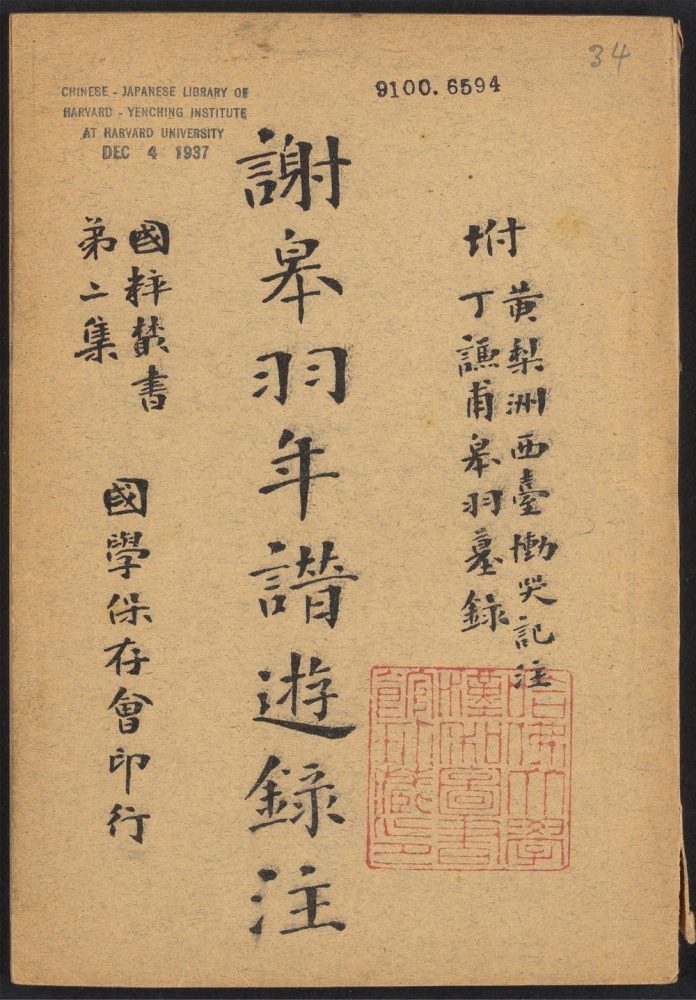 34
9100.6594
CHINESE - JAPANESE LIBRARY OF
HARVARD - YENCHING INSTITUTE
AT HARVARD UNIVERSITY
DEC 4 1937
附
黃梨洲西臺慟哭記注
丁謙甫皋羽墓錄
謝皋羽年譜遊錄注
國粹叢書
第二集
國學保存會印行
哈佛大學
漢和圖書
館所藏印